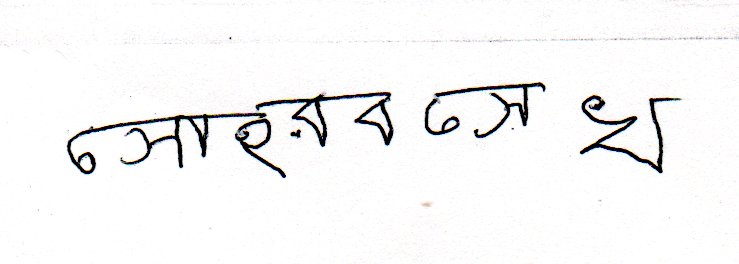 সোহরব সেখ